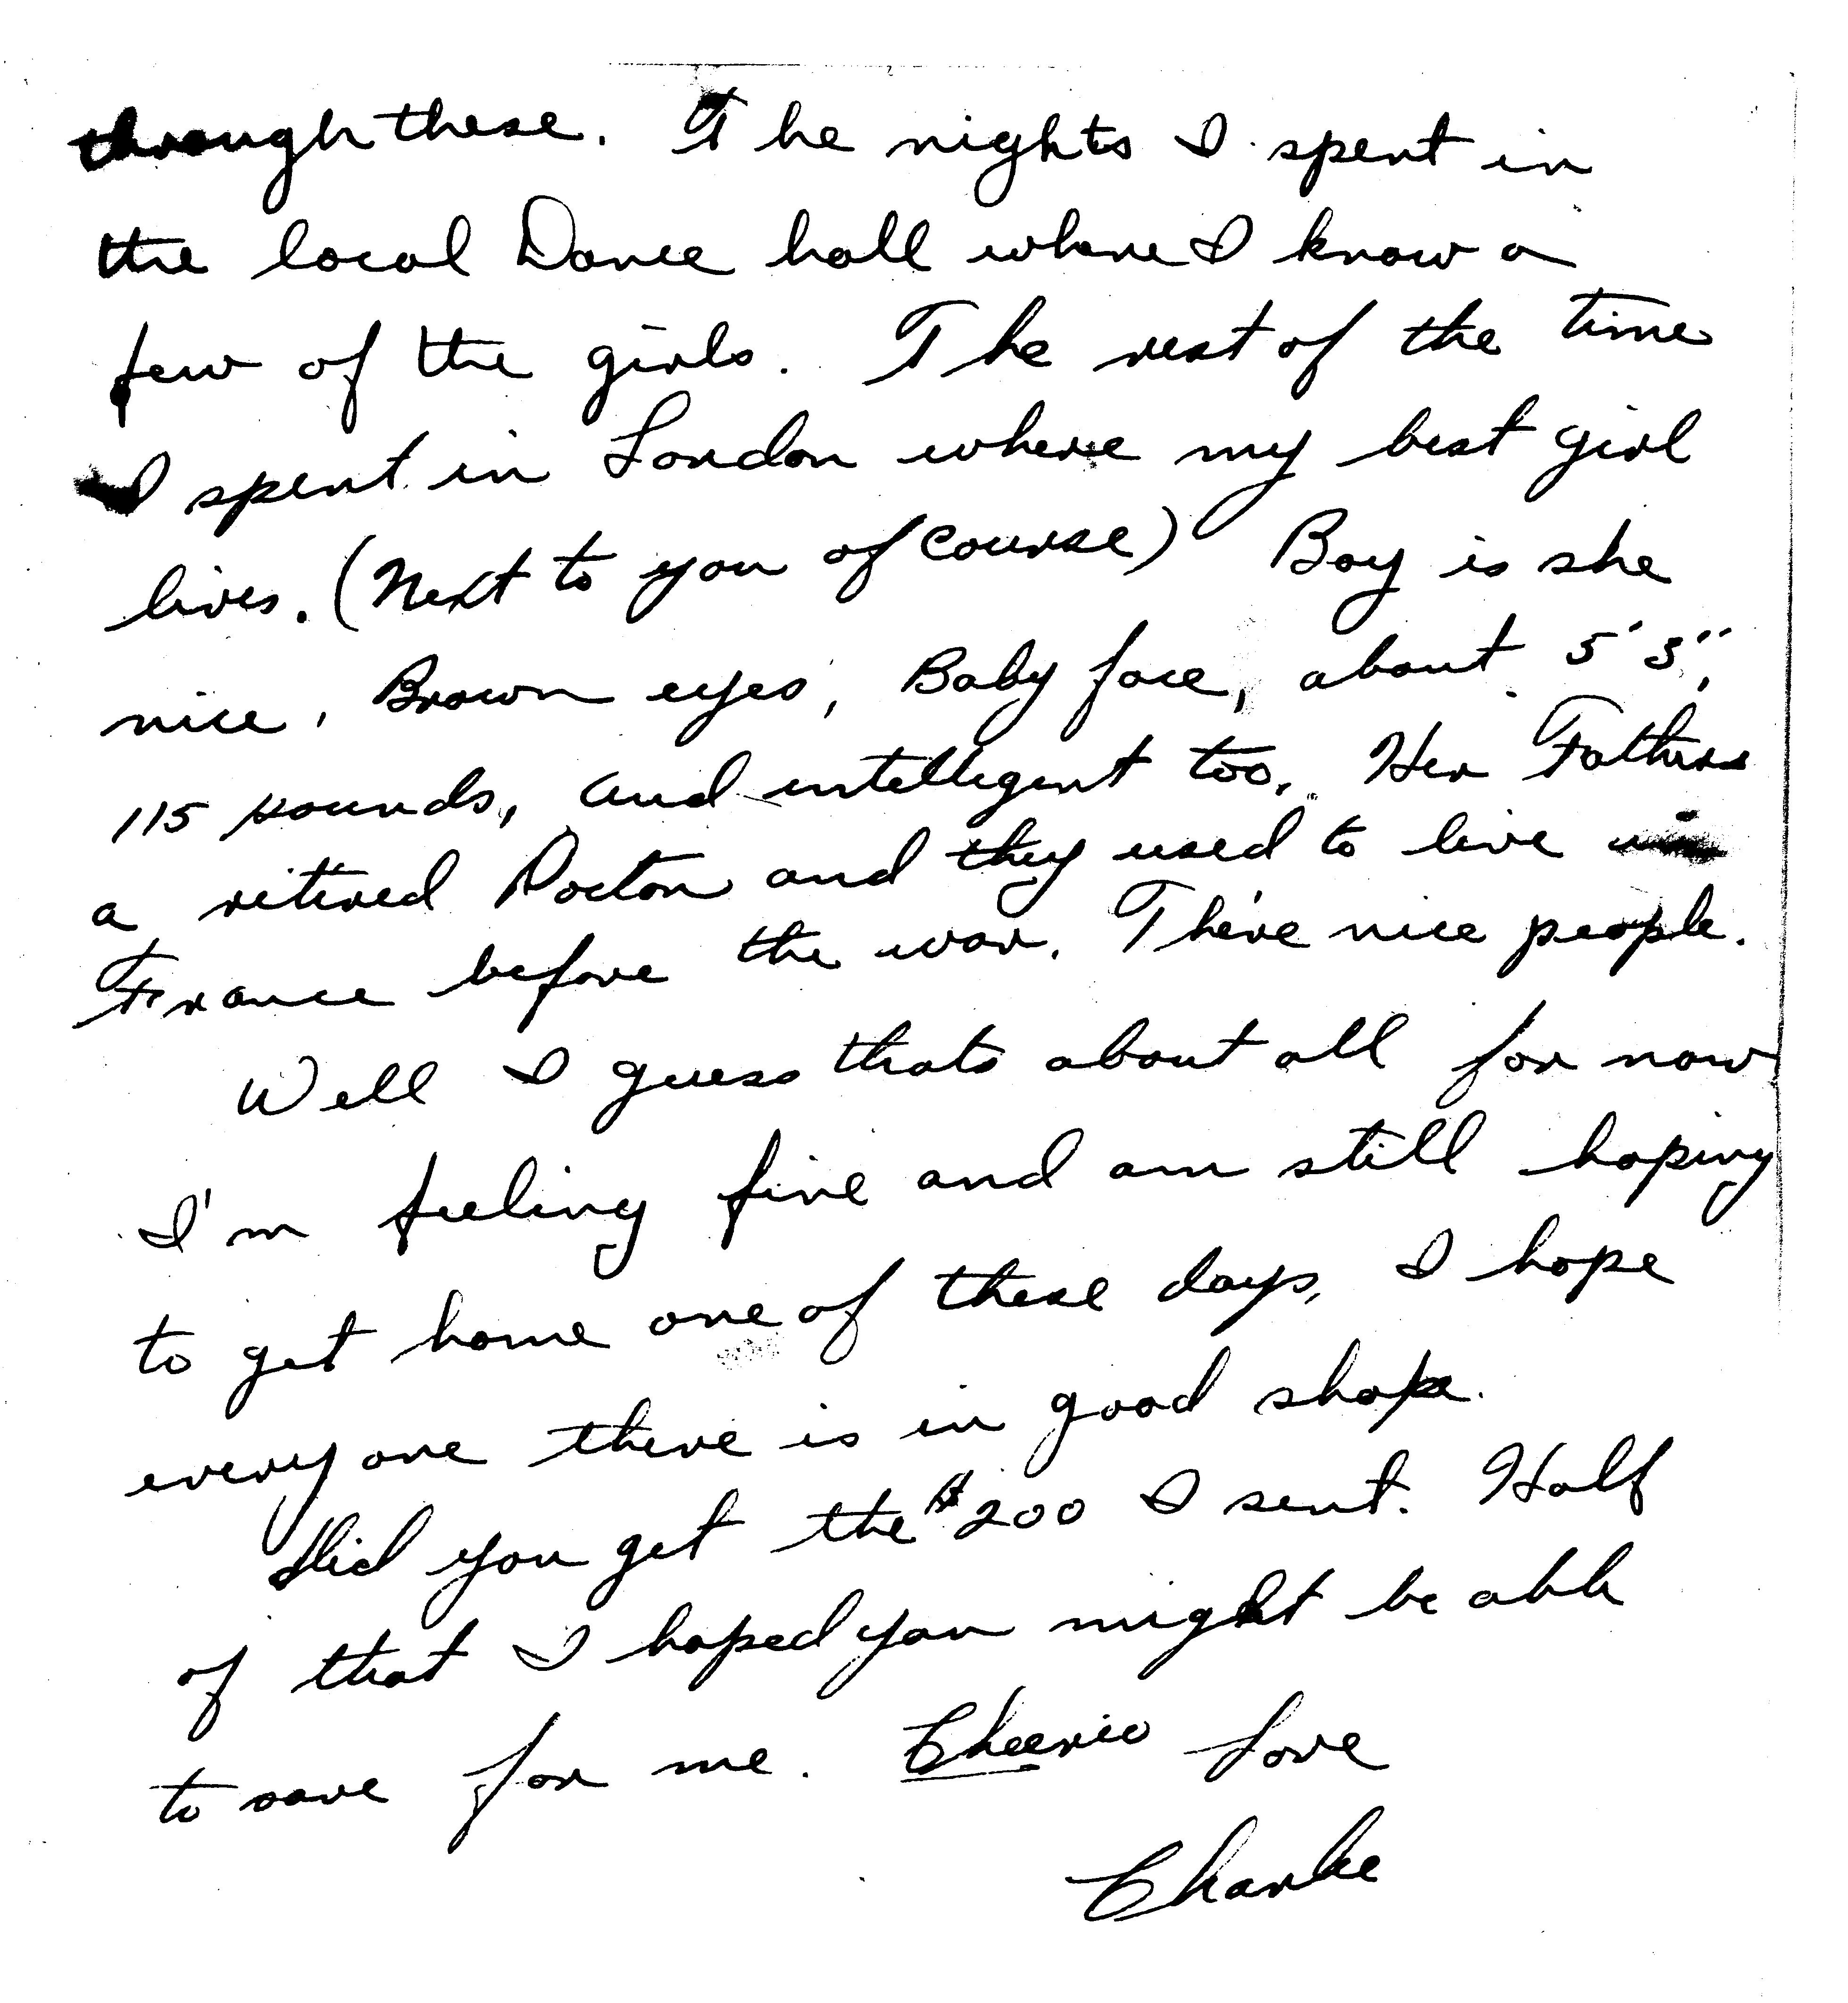 through these. The nights I spent in
the local Dance hall where I know a
few of the girls. The rest of the time
I spent in London where my best girl
lives. (Next to you of course) Boy is she
nice, Brown eyes, Baby face, about 5'3",
115 pounds, and intelligent too. Her Fathers
a retired Doctor and they used to live in
France before the war. The're nice people.
Well I guess thats about all for now
I'm feeling fine and am still hoping
to get home one of these days, I hope
everyone there is in good shape.
Did you get the $200 I sent. Half
of that I hoped you might be able
to save for me. Cheerio Love
Charlie